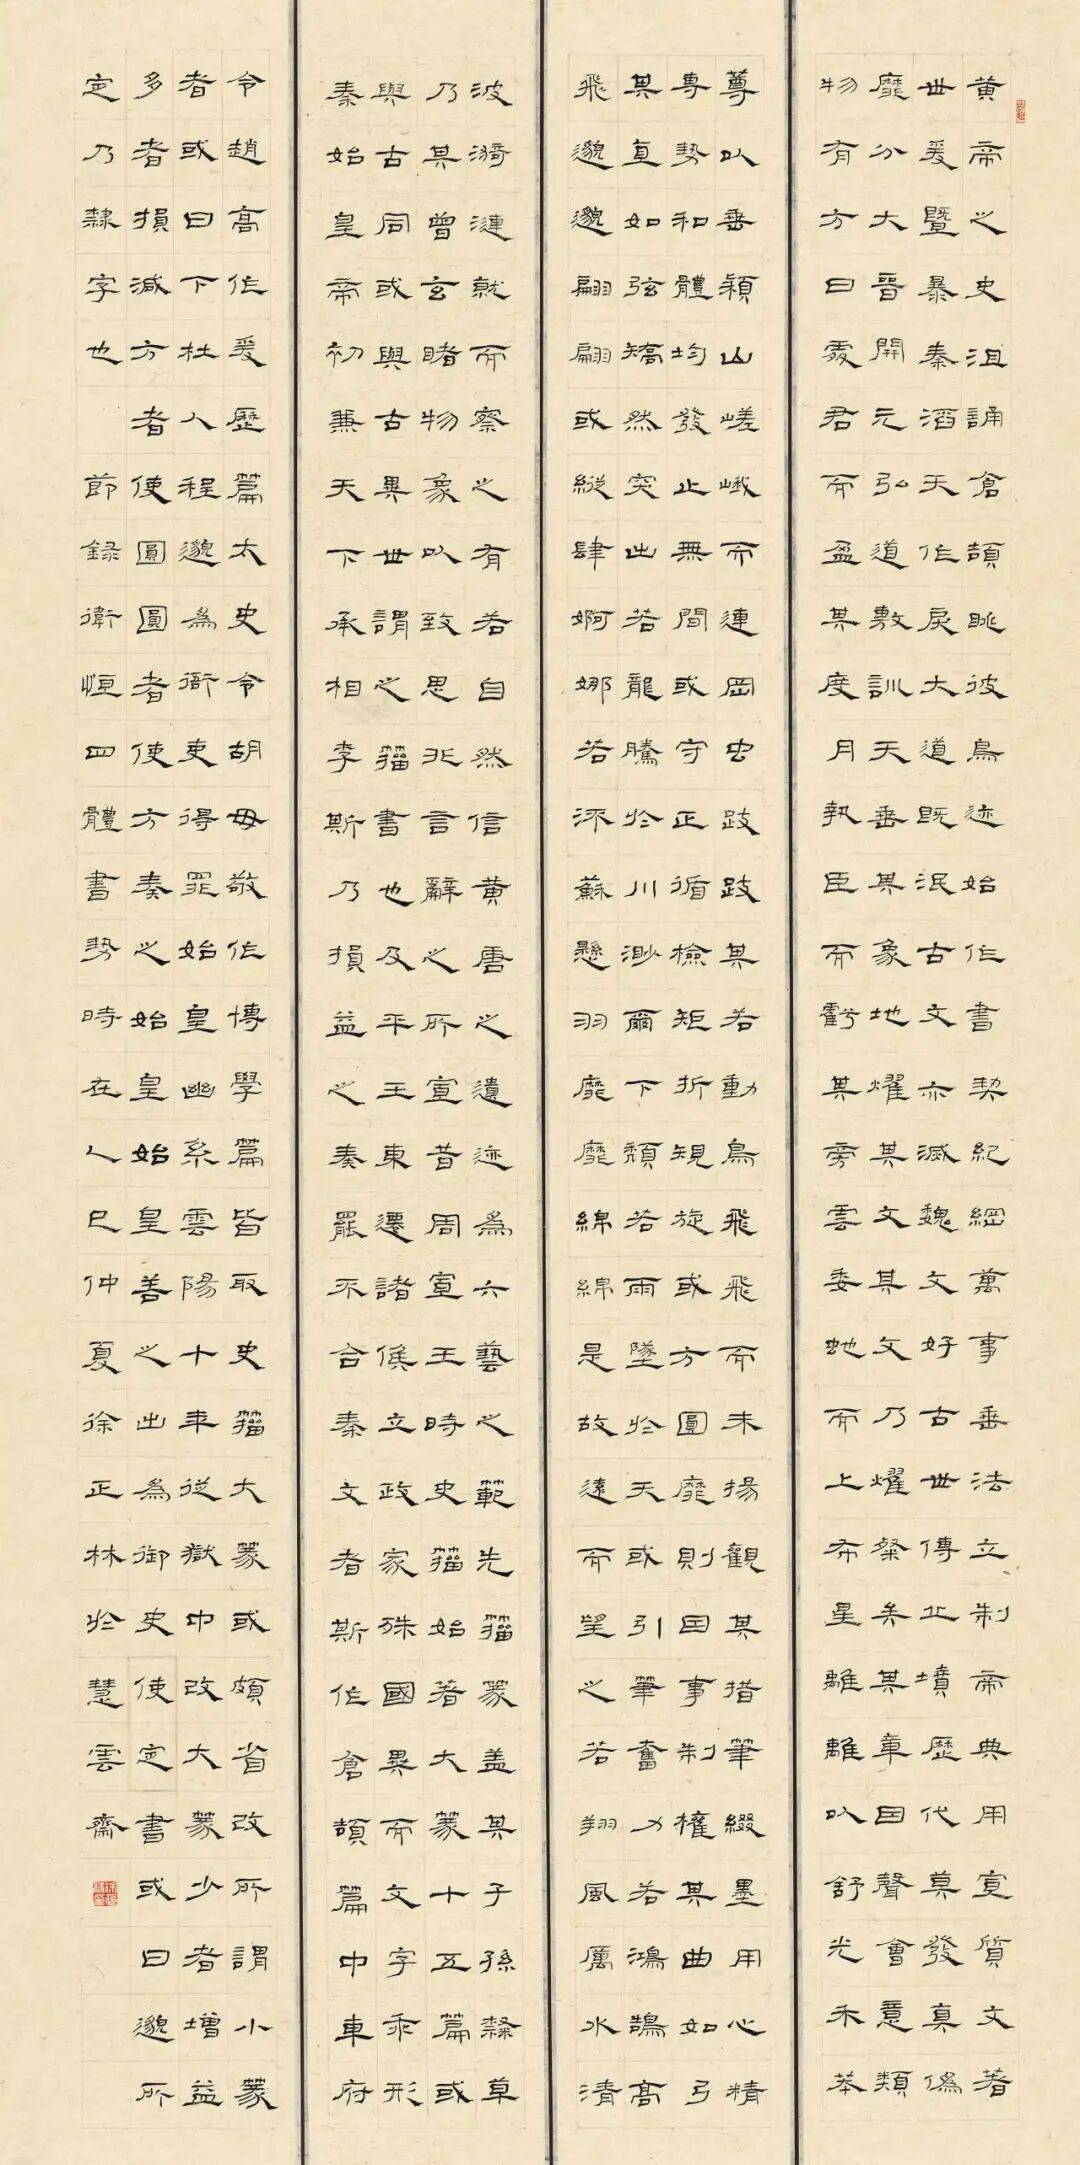 黄帝之史沮誦倉頡眺彼鳥迹始作書契紀綱萬事垂法立制帝典用宣質文著
世爰暨暴秦滔天作戾大道既泯古文亦滅魏文好古世傳丘墳歷代莫發真偽
靡分大晉開元弘道敷訓天垂其象地燿其文其文乃燿粲矣其章因聲會意類
物有方日處君而盈其度月執臣而虧其旁雲委虵而上布星離離以舒光禾苯
尊以垂穎山嵯峨而連岡虫跂跂其若動鳥飛飛而未揚觀其措筆綴墨用心精
專勢和體均發止無間或守正循檢矩折規旋或方圓靡則因事制權其曲如弓
其直如弦矯然突出若龍騰於川渺爾下頹若雨墜於天或引筆奮力若鴻鵠高
飛邈邈翩翩或縱肆婀娜若流蘇懸羽靡靡綿綿是故遠而望之若翔風厲水清
波漪漣就而察之有若自然信黄唐之遺迹為六藝之範先籀篆盖其子孫隸草
乃其曾玄睹物象以致思非言辭之所宣昔周宣王時史籀始著大篆十五篇或
與古同或與古異世謂之籀書也及平王東遷諸侯立政家殊國異而文字乖形
秦始皇帝初兼天下承相李斯乃損益之奏罷不合秦文者斯作倉頡篇中車府
令趙高作爰歷篇太史令胡毋敬作博學篇皆取史籀大篆或頗省改所謂小篆
者或曰下杜人程邈為衙吏得罪始皇幽系雲陽十年從獄中改大篆少者增益
多者損減方者使圓圓者使方奏之始皇始皇善之出為御史使定書或曰邈所
定乃隸字也 節録衛恒四體書勢時在乙巳仲夏徐正林於慧雲齋